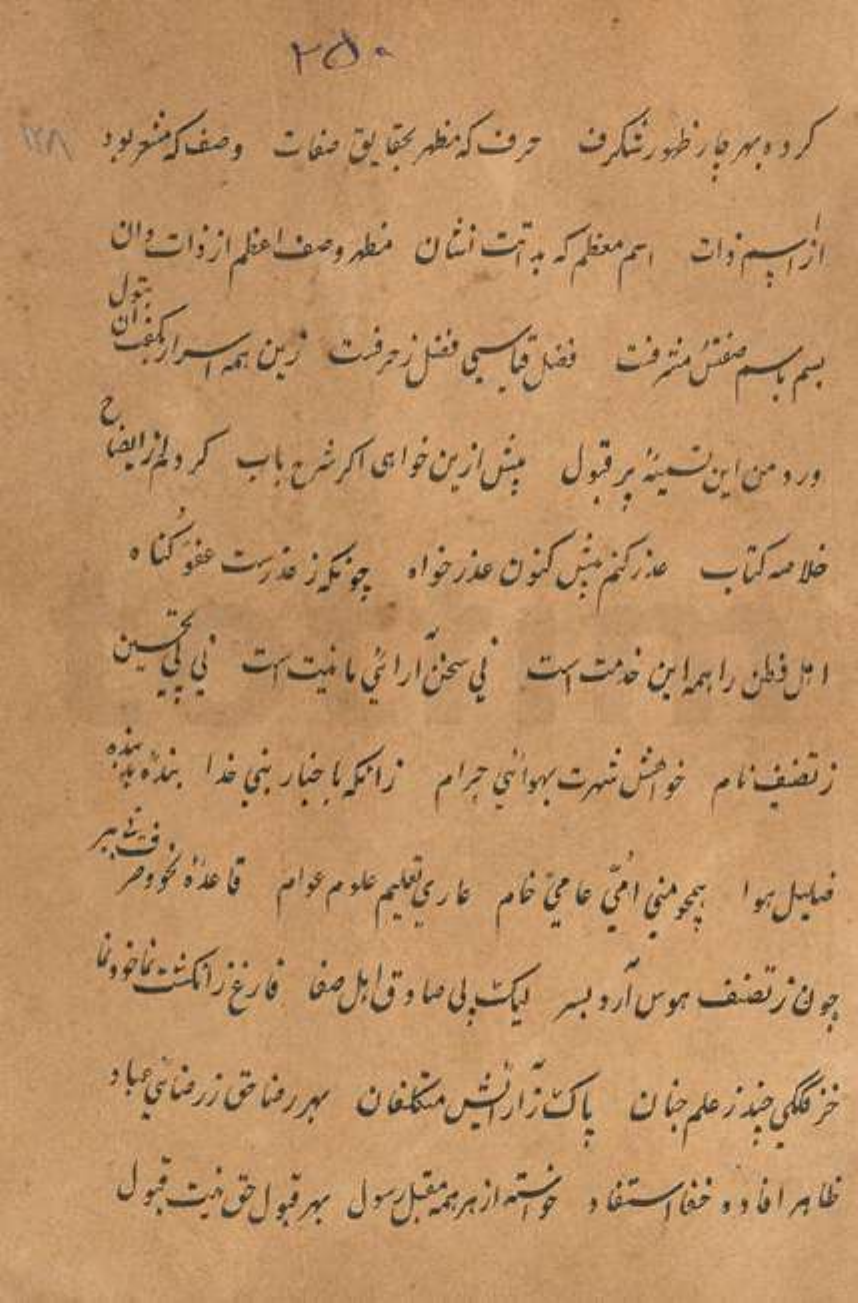 ۲۵۰
۱۲۸
کرده بهر چار ظهور شگرف حرف که مظهر بحقایق صفات وصف که مشعر بود
از اسم ذات اسم معظم که بذاتت نشان مظهر وصف اعظم از ذات دان
بسم باسم صفتش مشرفت فضل قیاسی فضل ز حرفت زین همه اسرار بکفت آن بتول
ورد من این نسینهٔ پر قبول بیش ازین خواهی اگر شرح باب کردلم از ایضاح
خلاصه کتاب عذر کنم پیش کنون عذر خواه چونکه ز عذرست عفو گناه
اهل فطن را همه این خدمت است نی سخن آرائی ما نیت است نی پی تحسین
ز تصنیف نام خواهش شهرت بهوائی حرام زانکه باخبار نبی خدا بنده بدبنده
ضلیل هوا همچو منی امّی عامیّ خام عاری تعلیم علوم عوام قاعدهٔ نحو و صرفت بسر
چون ز تصنف هوس آرد بسر لیک پی صادق اهل صفا فارغ ز انگشت نما خود نما
خز فلکی چند ز علم جنان پاک ز آرائش متکلفان بهر رضا حق ز رضائی عباد
ظاهر افاده و خفا استفاد خواسته از هر همه مقبل رسول بهر قبول حق نیت قبول